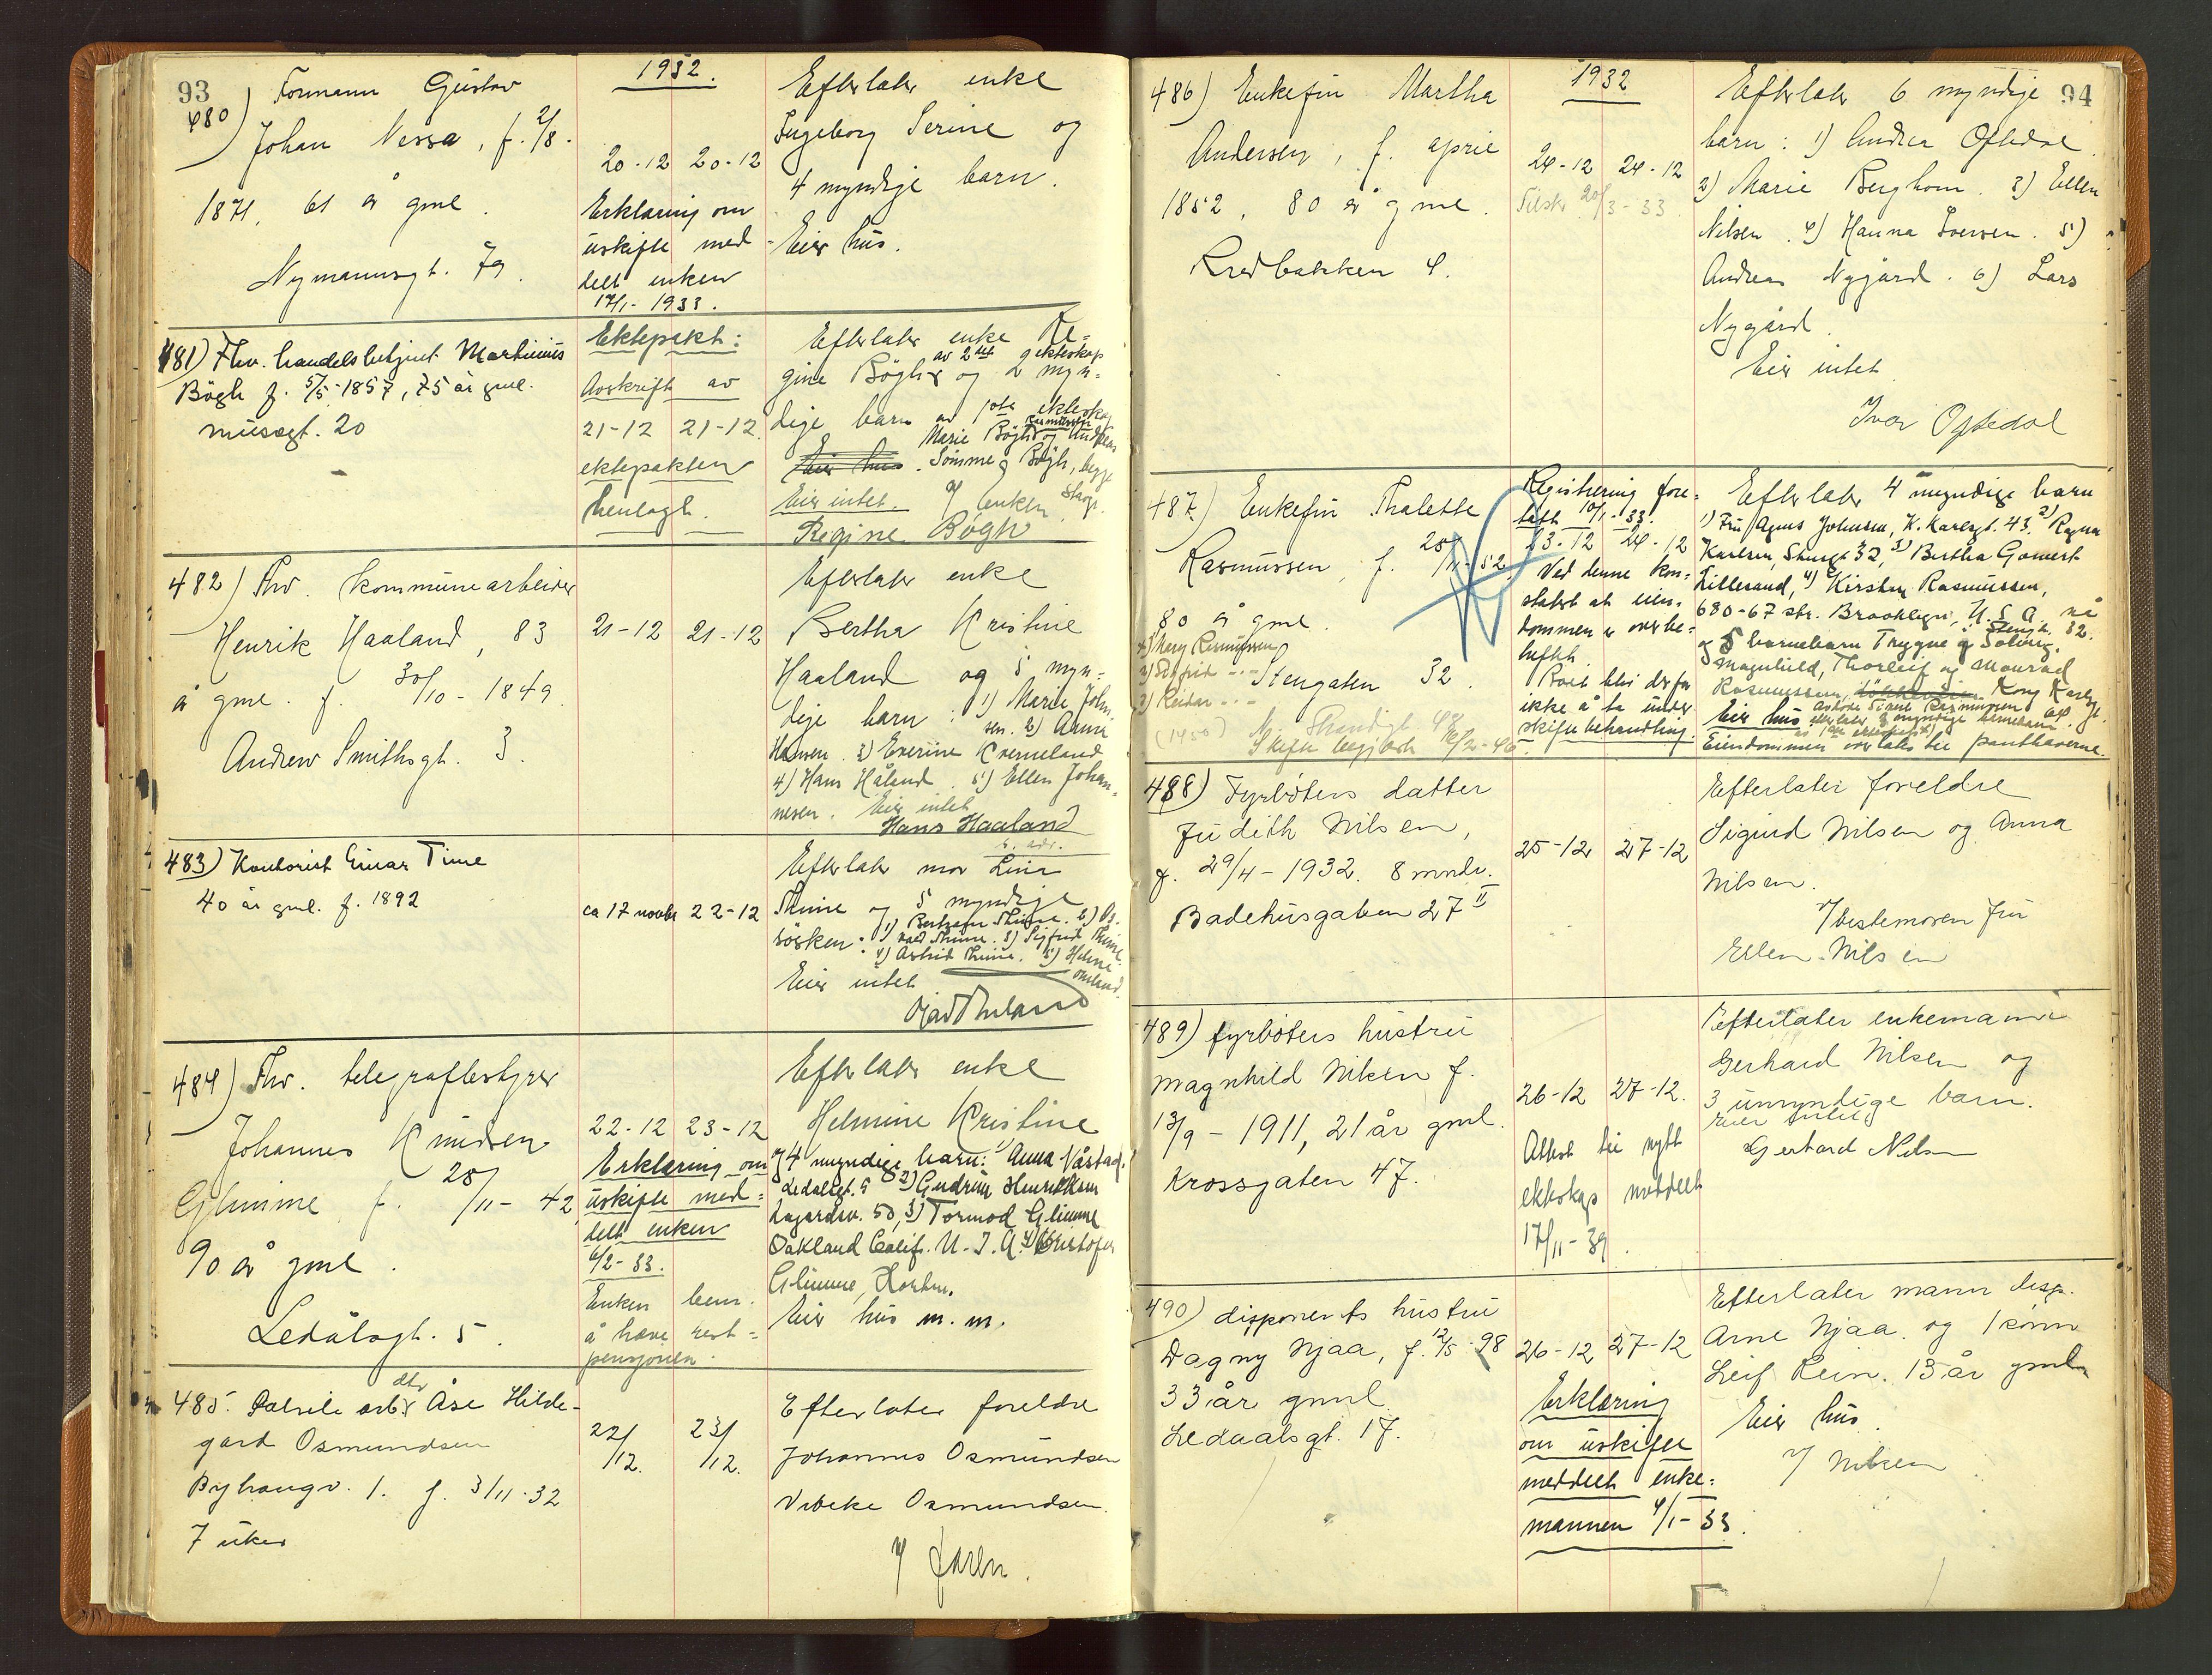 93
1932.
480) Formann Gustav
Johan Nessa, f. 2/8-
1871, 61 år gml.
Nymannsgt. 79.
20-12 20-12
Erklæring om
uskifte med-
delt enken
17/1-1933.
Efterlater enke
Ingeborg Serine og
4 myndige barn.
Eier hus.
481) Fhv. handelsbetjent Martinius
Bøgh f. 5/5-1857, 75 år gml.
Musegt. 20
Ektepakt:
Avskrift av
21-12 21-12.
ektepakten
henlagt.
Efterlater enke Re-
av 2det ekteskap
gine Bøgh og 2 myn-
dige barn av 1ste ekteskap
Marie Bøgh og
Sømme Bøgh, begge
Eier hus.
Eier intet. v/ enken
Regine Bøgh
482) Fhv. kommunearbeider
Henrik Haaland, 83
år gml. f. 30/10-1849
Andrew Smithsgt. 3.
21-12 21-12
Efterlater enke
Bertha Kristine
Haaland og 5 myn-
dige barn: 1) Marie John-
sen. 2) Anna
Hansen. 3) Everine Kverneland
4) Hans Håland. 5) Ellen Johan-
nesen. Eier intet
Hans Haaland
483) Kontorist Einar Time
40 år gml. f. 1892
ca 17 novbr 22-12
Efterlater mor Lina
Thime og 5 myndige
søsken: 1) Thime. 2)
Thime. 3) Sigfrid Thime.
4) Astrid Thime. 5) Helene
Omland.
Eier intet
484) Fhv. telegrafbestyrer
Johannes Knudsen
Glimme, f. 28/11-42
90 år gml.
Ledålsgt. 5.
22-12 23-12
Erklæring om
uskifte med-
delt enken
6/2-33.
Enken bem.
å hæve rest-
pensjonen.
Efterlater enke
Helmine Kristine
og 4 myndige barn: 1) Anna Våstad,
Ledålsgt. 5 2) Gudrun Henriksen
Lagårdsv. 50, 3) Tormod Glimme
Oakland Calif. U.S.A. 4) Kristofer
Glimme, Horten.
Eier hus m. m.
485. arb. dtr Åse Hilde-
gard Osmundsen
Byhaugv. 1. f. 3/11-32
7 uker
22/12. 23/12.
Efterlater foreldre
Johannes Osmundsen
Vibeke Osmundsen.
v/ Jåren.
94
1932
486) Enkefru Martha
Andersen, f. april
1852, 80 år gml.
Kredbakken 4.
24-12 24-12
Tilskr 20/3-33
Efterlater 6 myndige
barn: 1) Andrea Oftedal
2) Marie Berghom. 3) Ellen
Nilsen. 4) Hanna Iversen. 5)
Andreas Nygård. 6) Lars
Nygård.
Eier intet
Ivar Oftedal
487.) Enkefru Thalette
Rasmussen, f. 25/11-52
80 år gml.
1) Mary Rasmussen
2) Sigfrid -"-
3) Reidar -"-
Stengaten 32.
Strandgt 48
Skifte begjært 16/2-46
Registrering fore-
tatt 10/1-33.
23-12 24-12
Ved denne kon-
statert at eien-
dommen er overbe-
heftet.
Boet blei derfor
ikke å ta under
skiftebehandling.
Efterlater 4 myndige barn
1) Fru Agnes Johnsen, K. Karlsgt. 43, 2) Ragna
Karlsen, Stengt 32, 3) Bertha Gomert
Lillesand, 4) Kirsten Rasmussen,
680-67 str. Brooklyn, U.S.A. nå
Stengt. 32.
og 5 barnebarn Trygve og Solveig,
Magnhild, Thorleif og Monrad
Rasmussen, Kong Karlsgt.
Eier hus
Eiendommen overlates til panthaverne.
488) Fyrbøters datter
Judith Nilsen,
f. 29/4-1932. 8 mndr.
Badehusgaten 27 II
25-12 27-12
Efterlater foreldre
Sigurd Nilsen og Anna
Nilsen.
v/ bestemoren fru
Ellen Nilsen
489) fyrbøters hustru
Magnhild Nilsen f.
13/9-1911, 21 år gml.
Krossgaten 47.
26-12 27-12.
Attest til nytt
ekteskap meddelt
17/11-39.
Efterlater enkemann
Gerhard Nilsen og
3 umyndige barn.
Eier intet
Gerhard Nilsen
490) disponents hustru
Dagny Njaa, f. 12/5-98
33 år gml.
Ledaalsgt. 17.
26-12 27-12
Erklæring
om uskifte
meddelt enke-
mannen 4/1-33.
Efterlater mann disp.
Arne Njaa. og 1 sønn
Leif Rein. 13 år gml.
Eier hus.
v/ Nilsen